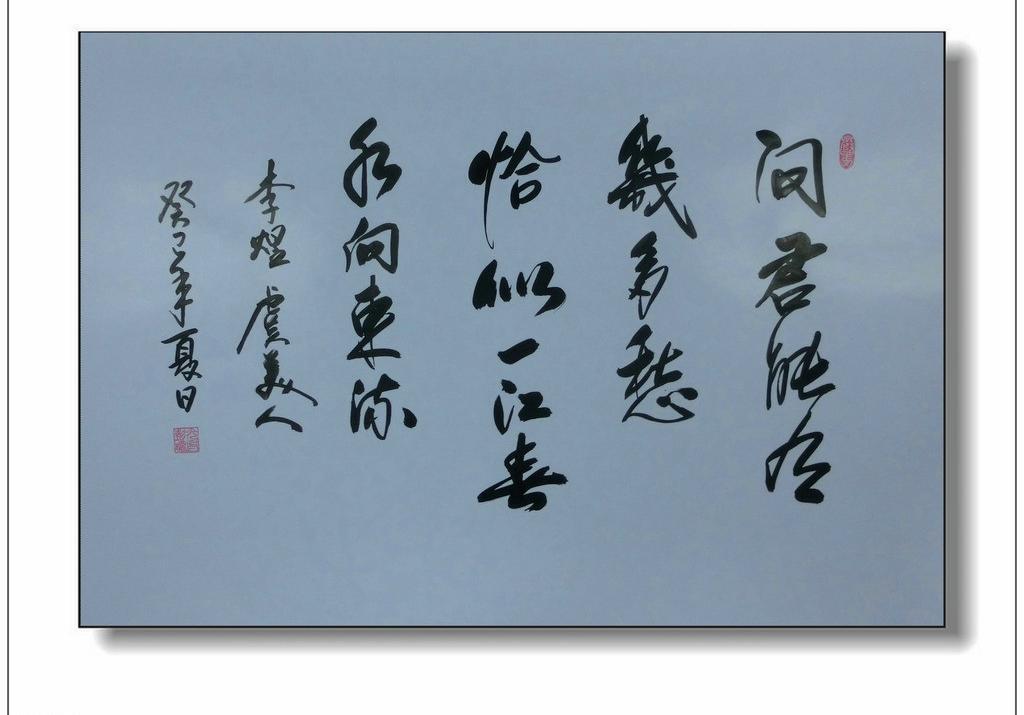 问君能有
幾多愁
恰似一江春
水向東流
李煜 虞美人
癸巳年夏日